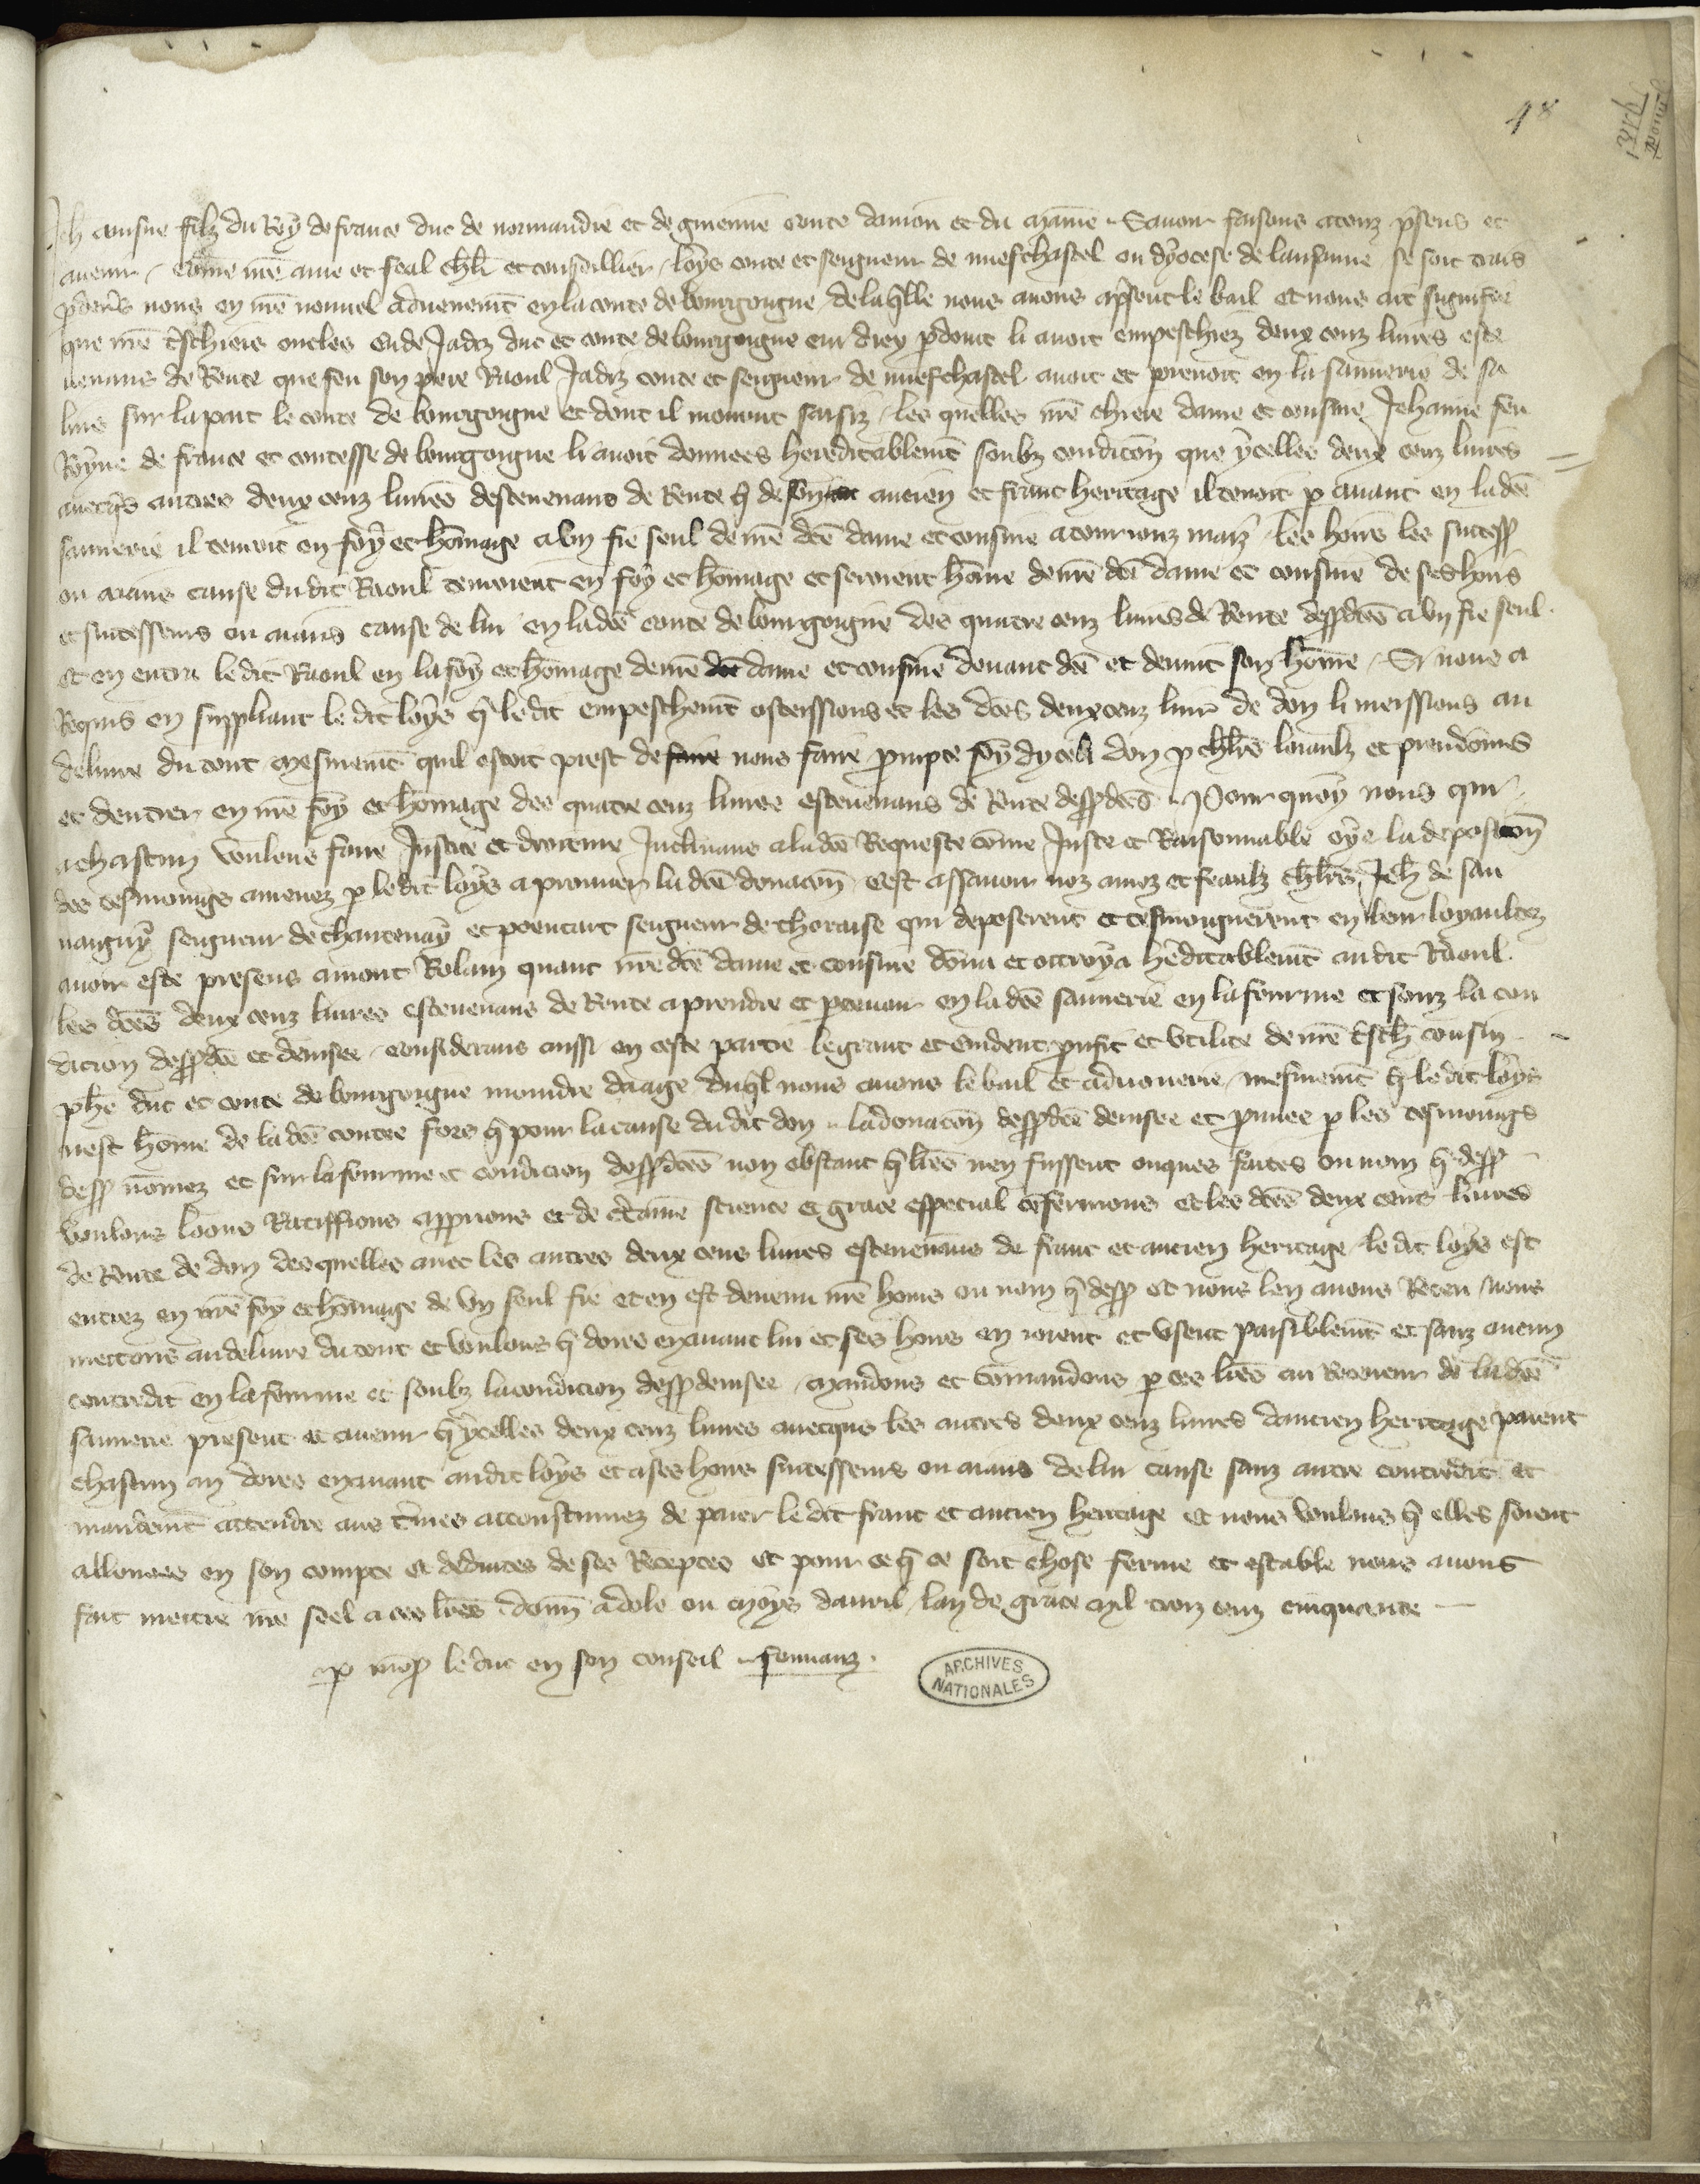 48
Jeh ainsne filz du Roy de france duc de normandie et de guienne conte danion et du maine Sauoir faisons a touz p̃sens et
auenir come nr̃e ame et feal chlr̃ et conseillier loys conte et seigneur de nuefchastel ou dyocese de lausanne se soit trais
p deuers nous en nr̃e nouuel aduenemt̃ en la conte de bourgoigne de laq̃lle nous auons a p̃sent le bail et nous ait signifie
que nr̃e tr̃schiers oncles eude Jadiz duc et conte de bourgoigne cui diex pardoint li auoit empeschiez deux cenz liures este
uenans de Rente que feu son pere Raoul Jadiz conte et seigneur de nuefchastel auoit et prenoit en la saunerie de sa
lins sur la part le conte de bourgoigne et dont il mourut saisiz les quelles nr̃e chiere dame et cousine Jehanne feu
Royne de france et contesse de bourgoigne li auoit donnees hereditablemt̃ soubz condicõn que ycelles deux cenz liures
auecq̃s autres deux cenz liures desteuenans de Rente q̃ de son ancien et franc heritage il tenoit p auant en la dc̃e
saunerie il tenroit en foy et homage a un fie seul de nr̃e dc̃e dame et cousine a tourionz mais les hoirs les success̃
ou aians cause du dit Raoul tenroient en foy et homage et seroient home de nr̃e dc̃e dame et cousine de ses hoirs
et successeurs ou aians cause de lui en la dc̃e conte de bourgoigne des quatre cenz liures de Rente dessp̃dc̃es a un fie seul
et en entra le dit Raoul en la foy et homage de nr̃e dame et cousine deuant dc̃e et deuint son home Si nous a
Requis en suppliant le dit loys q̃ le dit empeschemt̃ ostessions et les dc̃es deux cenz liur̃ de don li meissions au
deliure du tout mesmemt̃ quil estoit prest de nous faire prompte foy dycel don p chlr̃s loiaulz et preudomes
et dentrer en nr̃e foy et homage des quatre cenz liures esteuenans de Rente dessp̃dc̃es Pour quoy nous qui
a chascun voulons faire Justice et droiture Inclinans a la dc̃e Requeste come Juste et Raisonnable oye la deposicõn
des tesmoings amenez p le dit loys a prouuer la dc̃e donacõn cest assauoir noz amez et feaulz chlr̃s Jeh de san
uaigny seigneur de chantenay et poencart seigneur de thoraise qui deposerent et tesmoignerent en leur loyaultez
auoir este presens a mont Rolain quant nr̃e dc̃e dame et cousine dona et ottroya her̃ditablemt̃ au dit Raoul
les dc̃es deux cenz liures esteuenans de Rente a prendre et p ceuoir en la dc̃e saunerie en la fourme et souz la con
dicion dessp̃dc̃e et deuisee considerans aussi en ceste partie le grant et euident prufit et vtilite de nr̃e tr̃sch cousin
phẽ duc et conte de bourgoigne moindre daage duq̃l nous auons le bail et aduouerie mesmemt̃ q̃ le dit loys
nest home de la dc̃e contee fors q̃ pour la cause du dit don la donacõn dessp̃dc̃e deuisee et prouuee p les tesmoings
dess̃ nomez et sur la fourme et condicion dessp̃dc̃es non obstant q̃ lr̃es nen fussent onques faites ou nom q̃ dess̃
voulons loons Ratiffions approuons et de c̃taine science et grace especial cõfermons et les dc̃es deux cens liures
de Rente de don desquelles auec les autres deux cens liures esteuenans de franc et ancien heritage le dit loys est
entrez en nr̃e foy et homage de un seul fie et en est deuenu nr̃e homs ou nom q̃ dess̃ et nous len auons Receu nous
mettons au deliure du tout et voulons q̃ dores en auant lui et ses hoirs en ioient et vsent paisiblemt̃ et sanz aucun
contredit en la fourme et soubz la condicion dessp̃deuisee mandons et comandons p ces lr̃es au Receueur de la dc̃e
saunerie present et auenir q̃ ycelles deux cenz liures auecques les autres deux cenz liures dancien heritage paient
chascun an dores en auant au dit loys et a ses hoirs successeurs ou aians de lui cause sanz autre contredit et
mandemt̃ attendre aus t̃mes accoustumez de paier le dit franc et ancien heritage et nous voulons q̃ elles soient
allouees en son compte et deduites de ses Receptes et pour ce q̃ ce soit chose ferme et estable nous auons
fait mettre nr̃e seel a ces lr̃es donn̄ a dole ou moys dauril lan de grace mil troiz cenz cinquante
p mons̃ le duc en son conseil
ARCHIVES
NATIONALES